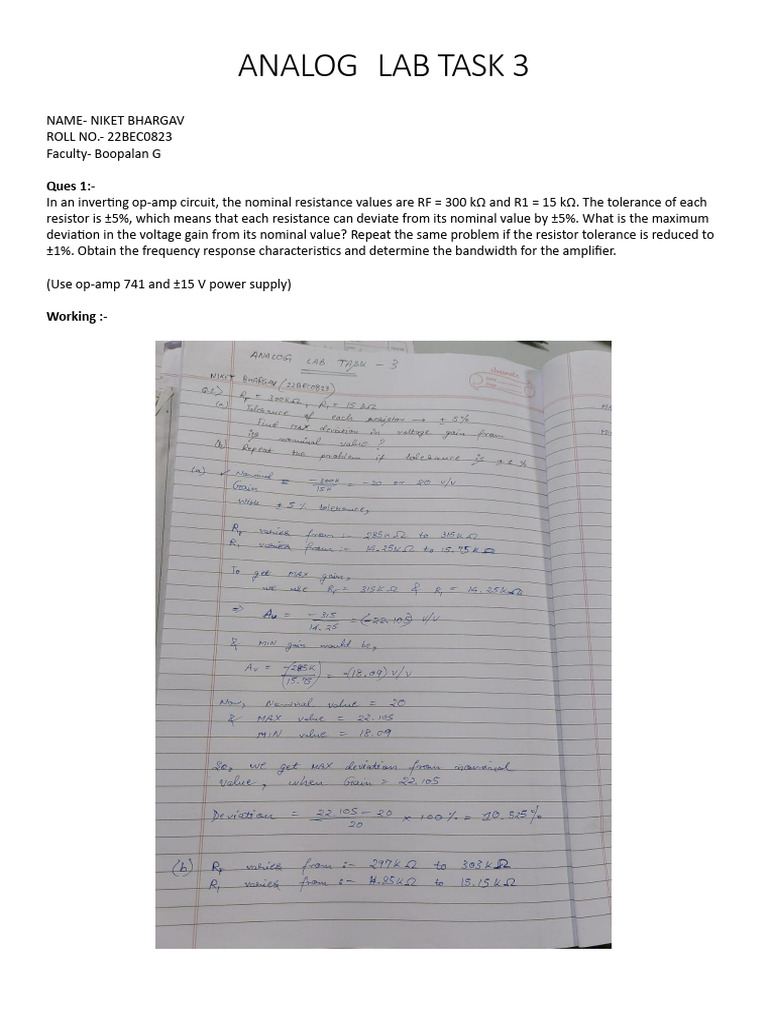 ANALOG LAB TASK 3
NAME- NIKET BHARGAV
ROLL NO.- 22BEC0823
Faculty- Boopalan G
Ques 1:-
In an inverting op-amp circuit, the nominal resistance values are RF = 300 kΩ and R1 = 15 kΩ. The tolerance of each
resistor is ±5%, which means that each resistance can deviate from its nominal value by ±5%. What is the maximum
deviation in the voltage gain from its nominal value? Repeat the same problem if the resistor tolerance is reduced to
±1%. Obtain the frequency response characteristics and determine the bandwidth for the amplifier.
(Use op-amp 741 and ±15 V power supply)
Working :-
ANALOG LAB TASK - 3
classmate
NIKET BHARGAV (22BEC0823)
Q1) RF = 300KΩ, R1 = 15 KΩ
(a) Tolerance of each resistor → ± 5%
Find MAX deviation in voltage gain from
its nominal value?
(b) Repeat the problem if tolerance is ± 1 %
(a) ✓ Nominal Gain = -300K/15K = -20 or 20 V/V
With ± 5% tolerance,
RF varies from :- 285KΩ to 315KΩ
R1 varies from :- 14.25KΩ to 15.75KΩ
To get MAX gain,
we use RF = 315KΩ & R1 = 14.25KΩ
⇒ Av = -315/14.25 = (-22.105) V/V
& MIN gain would be,
Av = -(285K)/(15.75) = -(18.09) V/V
Now, Nominal value = 20
& MAX value = 22.105
MIN value = 18.09
So, we get MAX deviation from nominal
value, when Gain = 22.105
Deviation = 22.105 - 20/20 × 100% = 10.525%
(b) RF varies from :- 297KΩ to 303KΩ
R1 varies from :- 14.85KΩ to 15.15KΩ